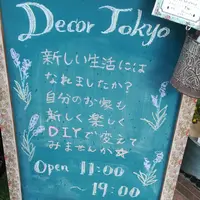 Decor Tokyo
新しい生活には
なれましたか?
自分のお家も
新しく楽しく
DIYで変えて
みませんか☆
Open 11:00
～19:00